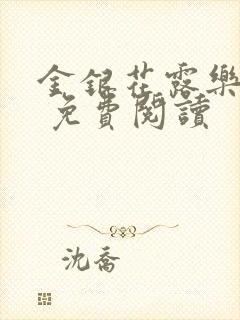 金銀花露樂
免費閱讀
沈喬